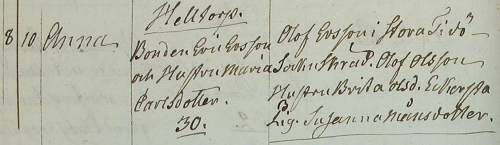 Helltorp.
8 10 Anna
Bonden Eric Ersson
och Hustru Maria
Carlsdotter.
30.
Olof Ersson i Stora Tidö
Olof Olsson
Hustru Brita Olsd. Eckersta
Pig. Susanna Månsdotter.